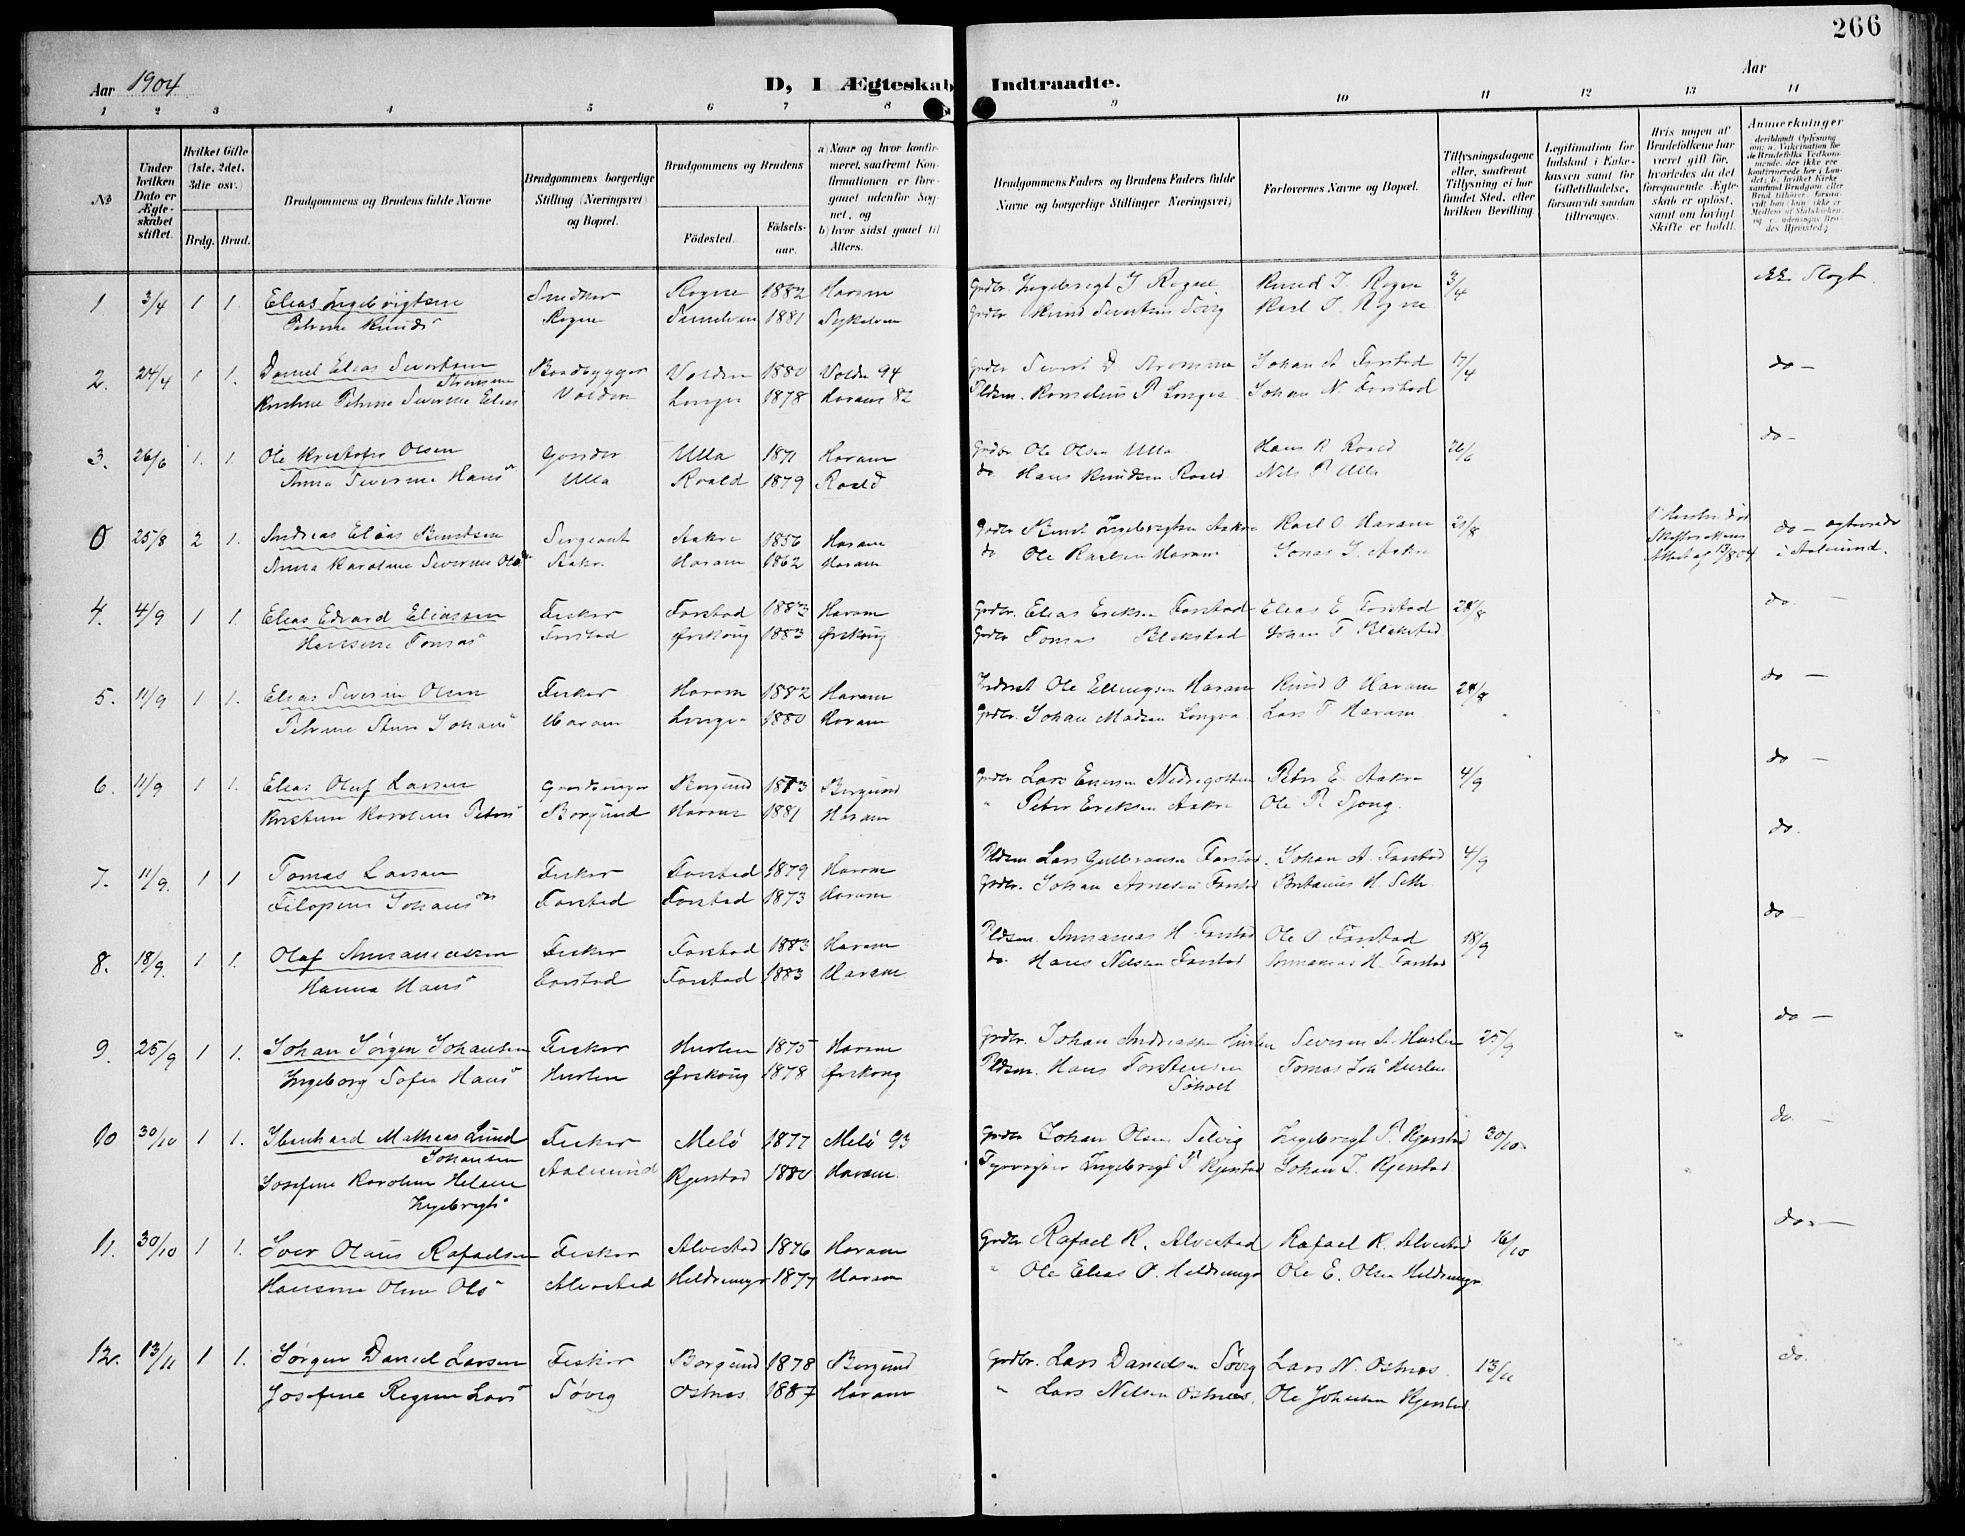 266
Aar 1904
D, I Ægteskab Indtraadte.
Aar
1 2 3 4 5 6 7 8 9 10 11 12 13 14
№
Under hvilken Dato er Ægteskabet stiftet.
Hvilket Gifte (1ste, 2det, 3die osv.)
Brdg. Brud.
Brudgommens og Brudens fulde Navne
Brudgommens borgerlige Stilling (Næringsvei) og Bopæl.
Brudgommens og Brudens
Fødested.
Fødselsaar.
a) Naar og hvor konfirmeret, saafremt Konfirmationen er foregaaet udenfor Sognet, og
b) hvor sidst gaaet til Alters.
Brudgommens Faders og Brudens Faders fulde Navne og borgerlige Stillinger Næringsvei)
Forlovernes Navne og Bopæl.
Tillysningsdagene eller, saafremt Tillysning ei har fundet Sted, efter hvilken Bevilling.
Legitimation for Indskud i Enkekassen samt for Giftetilladelse, forsaavidt saadan tiltrænges.
Hvis nogen af Brudefolkene har været gift før, hvorledes da det foregaaende Ægteskab er opløst, samt om lovligt Skifte er holdt.
Anmerkninger
1 3/4 1 1. Elias Ingebrigtsen Snedker Rogne 1882 Haram Grdbr. Ingebregt J Rogne Knud J. Rogne 3/4
Petrine Knuds Rogne 1881 Grdbr Knud Karl J. Rogne
2. 24/4 1 1. Daniel Elias Sivertsen Strømme Baadbygger Volden 1880 Volden 94 Sivert D Strømme Johan A Farstad 17/4 do -
Petrine Severine Elias Volden Longva 1878 Haram 82 Pldsm. Kornelius P. Longva Johan N. Farstad
3. 26/6 1. 1. Ole Kristofer Olsen Ulla 1871 Haram Grdbr Ole Olsen Ulla Hans K Roald 26/6 do -
Anna Severine Hans Ulla Roald 1879 Roald do Hans Knudsen Roald Nils P Ulla
0 25/8 2 1. Andreas Elias Knudsen Sergeant Aakre 1856 Haram Grdbr Knut Ingebregtsen Aakre Karl O Haram 21/8 do -
Anna Karoline Severine Ols Aakre Haram 1862 Haram do Ole Karlsen Haram Jonas J. Aakre i Aalesund.
4. 4/9 1 1. Elias Edvard Eliassen Fisker Farstad 1883 Haram Grdbr. Elias Eriksen Farstad Elias E Farstad 28/8 do. -
Hansine Tomas Farstad Ørskoug 1883 Ørskoug Grdbr Tomas Blakstad Johan T Blakstad
5. 11/9 1 1. Elias Severin Olsen Fisker Haram 1882 Haram Ole Ellingsen Haram Knud O Haram 28/8 do -
Petrine Anna Johans Haram Longva 1880 Haram Grdbr. Johan Madsen Longva Lars T Haram
6. 11/9 1 1. Elias Oluf Larsen Gaardbruger Borgund 1873 Borgund Grdbr Lars Petter E. Aakre 4/9 do -
Karoline Peters Borgund Haram 1881 Haram " Peter Eriksen Aakre Ole P. Sjong.
7. 11/9. 1 1 Tomas Larsen Fisker Farstad 1879 Haram Pldsm Lars Gulbransen Farstad. Johan A. Farstad 4/9 do.
Johans Farstad Farstad 1873 Haram Grdbr. Johan Arnesen Farstad
8. 18/9. 1 1. Olaf Annaniassen Fisker Farstad 1883 Haram Pldsm. Annanias H. Farstad Ole O Farstad 18/9 do
Hanna Hans Farstad Farstad 1883 Haram do. Hans Nilsen Farstad Annanias H. Farstad
9. 25/9 1 1. Johan Jørgen Johansen Fisker Hurlen 1875 Haram Grdbr. Johan Andreassen Hurlen Severin A. Hurlen 25/9 do -
Ingeborg Sofia Hans Hurlen Ørskoug 1878 Ørskoug Pldsm. Hans Torstensen Søholt Tomas Joh Hurlen
10 30/10 1 1. Mathias Lund Johansen Fisker Melø 1877 Melø 93 Grdbr Johan Olsen Selvig Ingebregt P. Kjerstad 30/10 do. -
Josefine Karoline Helene Ingebregts Aalesund Kjerstad 1880 Haram. Ingebregt P Kjerstad Johan J. Kjerstad
11. 30/10 1 1. Iver Olaus Rafaelsen Fisker Alvestad 1876 Haram Grdbr Rafael K. Alvestad Rafael K. Alvestad 16/10 do. -
Hansine Oline Ols Alvestad Hildremyr 1877 Haram " Ole Elias O. Hildremyr Ole E. Olsen Hildremyr
12. 13/11 1 1. Jørgen Daniel Larsen Fisker Borgund 1878 Borgund Grdbr. Lars Danielsen Søvig Lars N. Ostnes 13/11 do.
Josefine Regine Lars Søvig Ostnes 1887 Haram " Lars Nilsen Ostnes. Ole Johansen Kjerstad